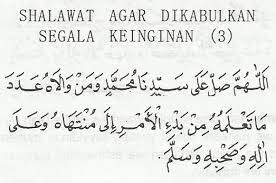 SHALAWAT AGAR DIKABULKAN
SEGALA KEINGINAN (3)
اَللّٰهُمَّ صَلِّ عَلَى سَيِّدِنَا مُحَمَّدٍ وَمَنْ وَالَاهُ عَدَدَ
مَا تَعْلَمُهُ مِنْ بَدْءِ الْأَمْرِ إِلَى مُنْتَهَاهُ وَعَلَى
اٰلِهِ وَصَحْبِهِ وَسَلِّمْ.